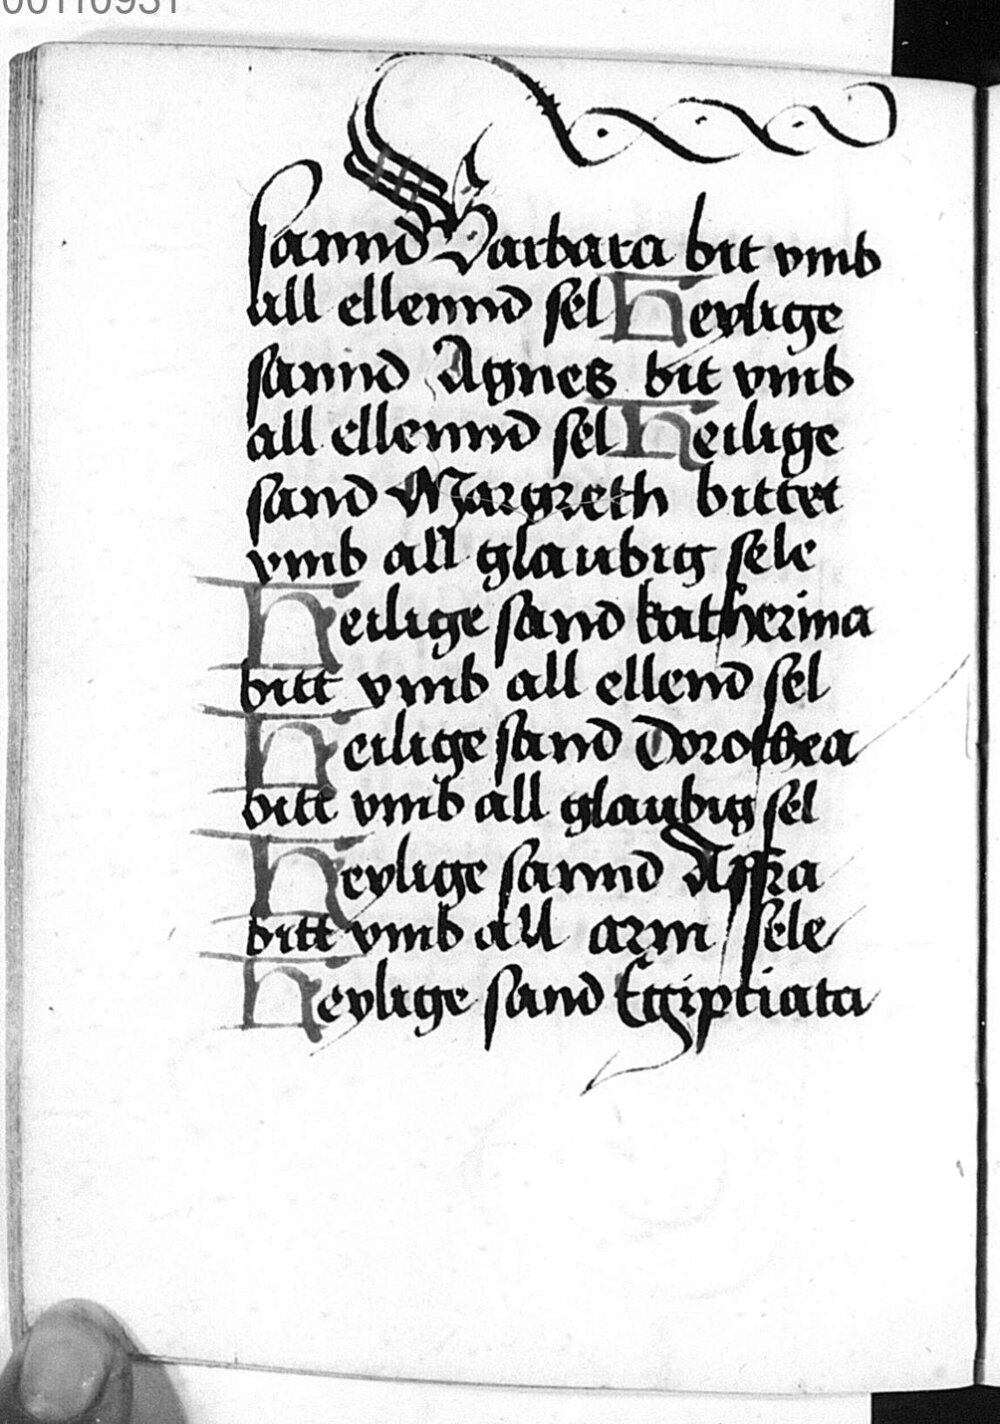 00110931
sannd Barbara bit vmb
all ellennd sel Heylige
sannd Agnes bit vmb
all ellennd sel Heilige
sand Margreth bittet
vmb all glaubig sele
Heilige sand katherina
bitt vmb all ellend sel
Heilige sand Dorothea
bitt vmb all glaubig sel
Heylige sannd Affra
bitt vmb all arm sele
Heylige sand Egiptiata